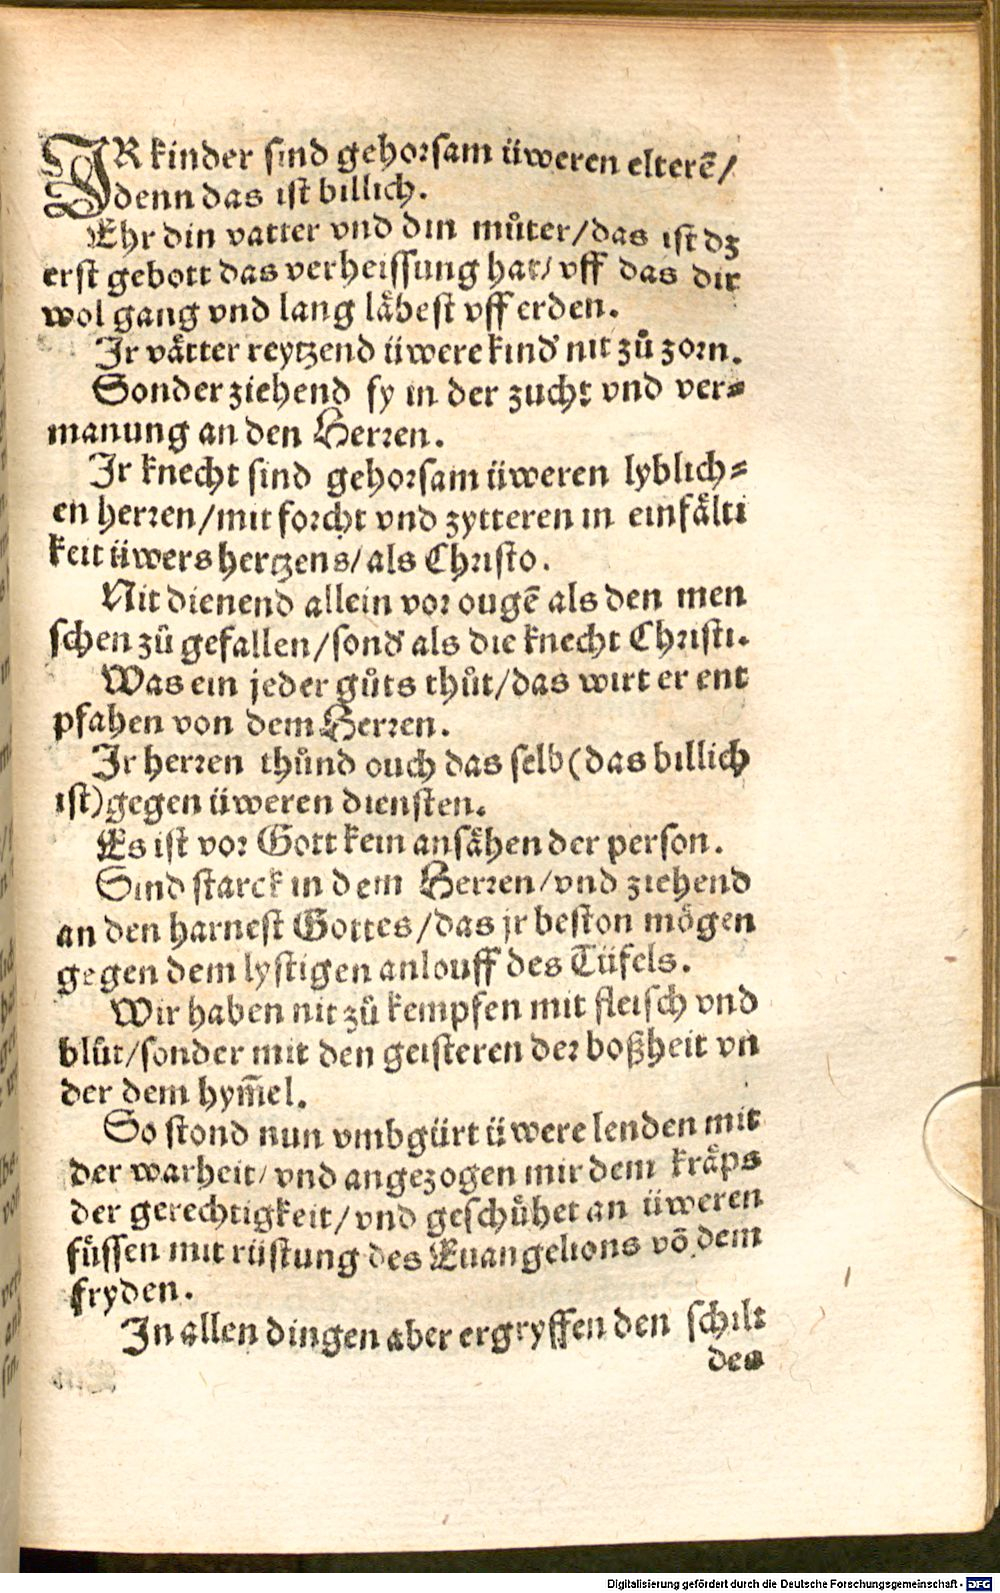 IR kinder sind gehorsam üweren elterē/
denn das ist billich.
Ehr din vatter vnd din můter/das ist dz
erst gebott das verheissung hat/ vff das dir
wol gang vnd lang läbest vff erden.
Ir vätter reytzend üwere kind' nit zů zorn.
Sonder ziehend sy in der zucht vnd ver=
manung an den Herren.
Ir knecht sind gehorsam üweren lyblich=
en herren/mit forcht vnd zytteren in einfälti
keit üwers hertzens/als Christo.
Nit dienend allein vor ougē als den men
schen zů gefallen/sond' als die knecht Christi.
Was ein jeder gůts thůt/das wirt er ent
pfahen von dem Herren.
Ir herren thůnd ouch das selb (das billich
ist) gegen üweren diensten.
Es ist vor Gott kein ansähen der person.
Sind starck in dem Herren/vnd ziehend
an den harnest Gottes/das jr beston mögen
gegen dem lystigen anlouff des Tüfels.
Wir haben nit zů kempfen mit fleisch vnd
blůt/sonder mit den geisteren der boßheit vn
der dem hym̄el.
So stond nun vmbgürt üwere lenden mit
der warheit/ vnd angezogen mit dem kräps
der gerechtigkeit/vnd geschühet an üweren
füssen mit rüstung des Euangelions vō dem
fryden.
In allen dingen aber ergryffen den schilt
des
Digitalisierung gefördert durch die Deutsche Forschungsgemeinschaft - DFG